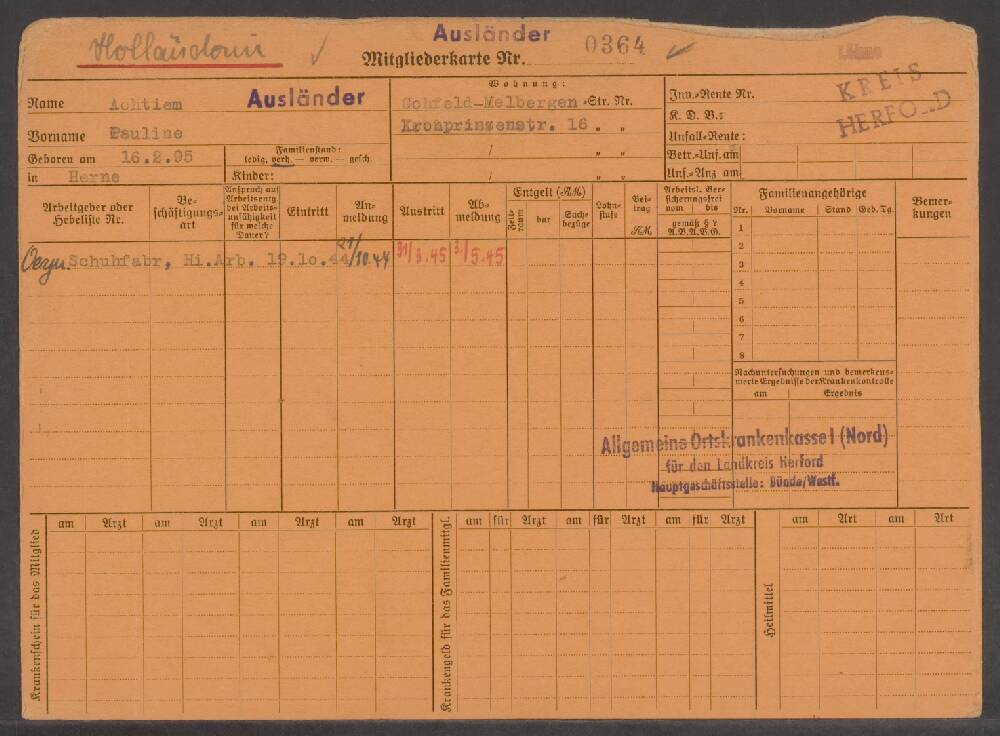 Holländerin
Ausländer
Mitgliederkarte Nr. 0364
KREIS
HERFO..D
Name Achtiem
Ausländer
Vorname Pauline
Geboren am 16.2.95
in Herne
Familienstand:
ledig, verh. — verw. — gesch.
Kinder:
Wohnung:
Gohfeld-Melbergen -Str. Nr.
Kronprinzenstr. 16 „ „
/ „ „
/ „ „
Inv.-Rente Nr.
K. D. B.:
Unfall-Rente:
Betr.-Unf. am
Unf.-Anz am
Arbeitgeber oder Hebeliste Nr.
Beschäftigungsart
Anspruch auf Arbeitsentg. bei Arbeitsunfähigkeit für welche Dauer?
Eintritt
Anmeldung
Austritt
Abmeldung
Entgelt (RM)
Zeitraum
bar
Sachbezüge
Lohnstufe
Beitrag RM
Arbeitsl. Versicherungsfrei
vom | bis
gemäß §
A.V.A.V.G.
Familienangehörige
Nr. Vorname Stand Geb. Tg.
Bemerkungen
1
2
3
4
5
6
7
8
Schuhfabr, Hi.Arb. 19.10.44 21/10.44 31/3.45 3/5.45
Nachuntersuchungen und bemerkenswerte Ergebnisse der Krankenkontrolle
am Ergebnis
Allgemeine Ortskrankenkasse I (Nord)
für den Landkreis Herford
Hauptgeschäftsstelle: Bünde/Westf.
Krankenschein für das Mitglied
am Arzt am Arzt am Arzt am Arzt
Krankengeld für das Familienmitgl.
am für Arzt am für Arzt am für Arzt
Heilmittel
am Art am Art